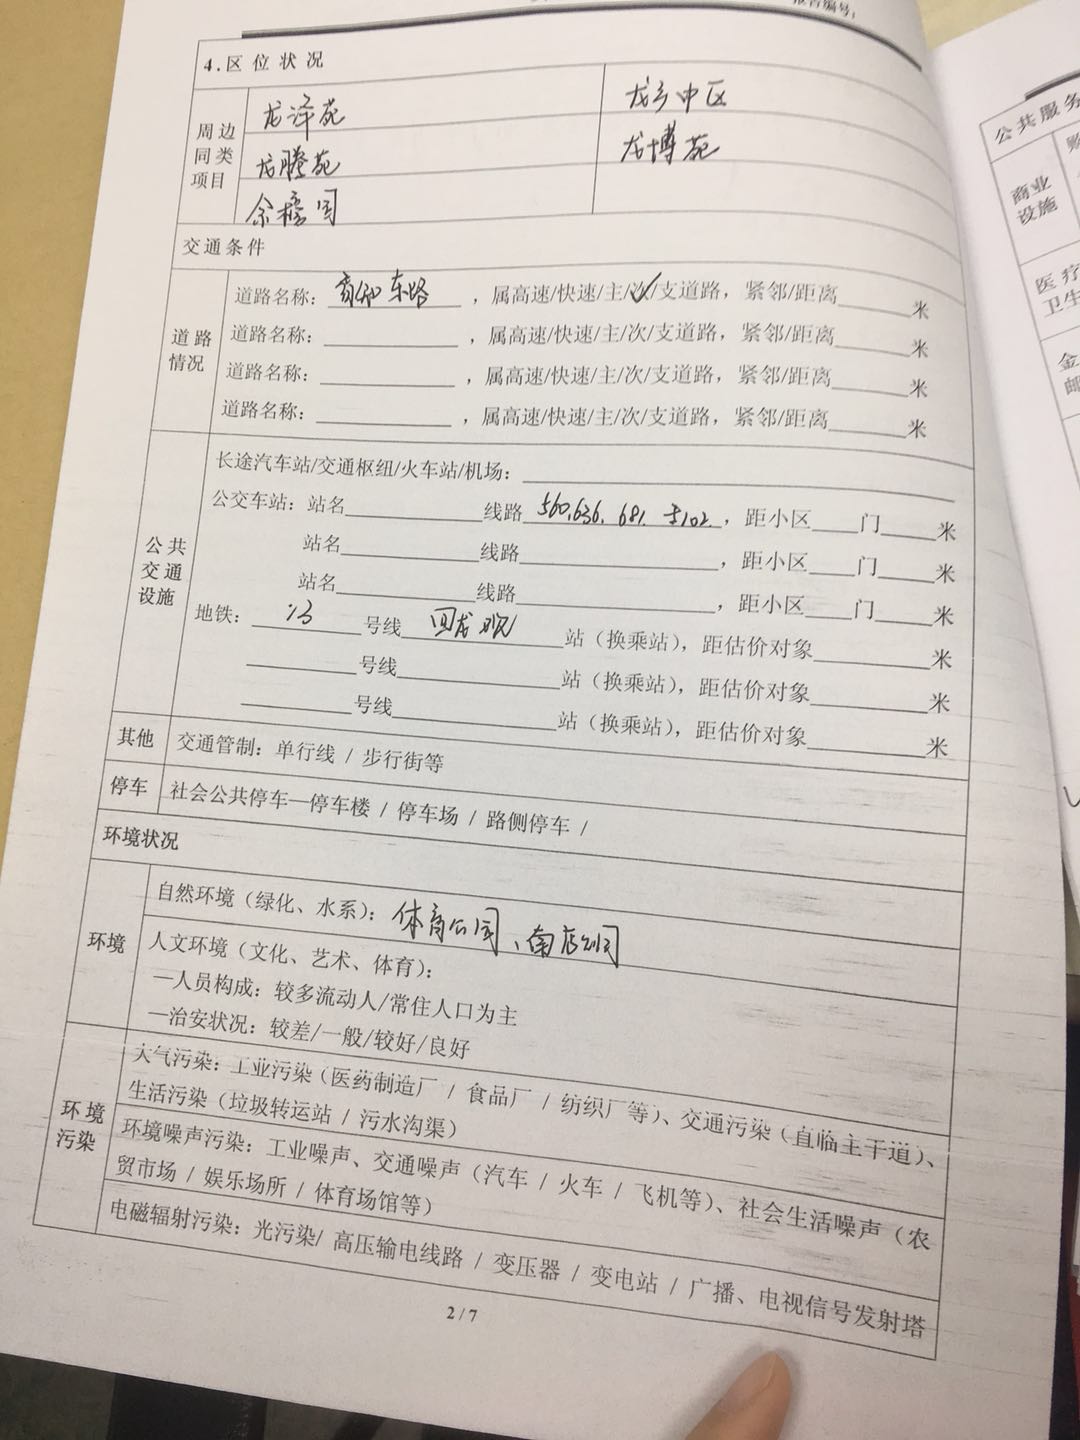 报告编号:
4.区位状况
周边同类项目
龙泽苑
龙乡中区
龙腾苑
龙博苑
交通条件
道路情况
道路名称: 育知东路 ,属高速/快速/主/次✓/支道路,紧邻/距离______米
道路名称:__________ ,属高速/快速/主/次/支道路,紧邻/距离______米
道路名称:__________ ,属高速/快速/主/次/支道路,紧邻/距离______米
道路名称:__________ ,属高速/快速/主/次/支道路,紧邻/距离______米
公共交通设施
长途汽车站/交通枢纽/火车站/机场:__________
公交车站:站名__________线路 560.636. 681. 专102 ,距小区____门____米
站名__________线路__________,距小区____门____米
站名__________线路__________,距小区____门____米
地铁: 13 号线 回龙观 站(换乘站),距估价对象________米
________号线__________站(换乘站),距估价对象________米
________号线__________站(换乘站),距估价对象________米
其他 交通管制:单行线 / 步行街等
停车 社会公共停车—停车楼 / 停车场 / 路侧停车 /
环境状况
环境
自然环境(绿化、水系): 体育公园、南店公园
人文环境(文化、艺术、体育):
—人员构成:较多流动人/常住人口为主
—治安状况:较差/一般/较好/良好
环境污染
大气污染:工业污染(医药制造厂 / 食品厂 / 纺织厂等)、交通污染(直临主干道)、
生活污染(垃圾转运站 / 污水沟渠)
环境噪声污染:工业噪声、交通噪声(汽车 / 火车 / 飞机等)、社会生活噪声(农
贸市场 / 娱乐场所 / 体育场馆等)
电磁辐射污染:光污染/ 高压输电线路 / 变压器 / 变电站 / 广播、电视信号发射塔
2 / 7
公共服务
商业设施
医疗
卫生
金
邮